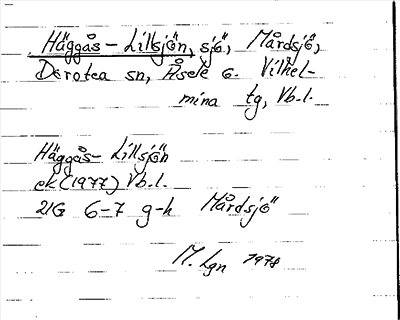 Häggås-Lillsjön, sjö, Mårdsjö,
Dorotea sn, Åsele o. Vilhel-
mina tg, Vb.l.
Häggås-Lillsjön
ek (1977) Vb.l.
21G 6-7 g-h Mårdsjö
M. Lgn 1978